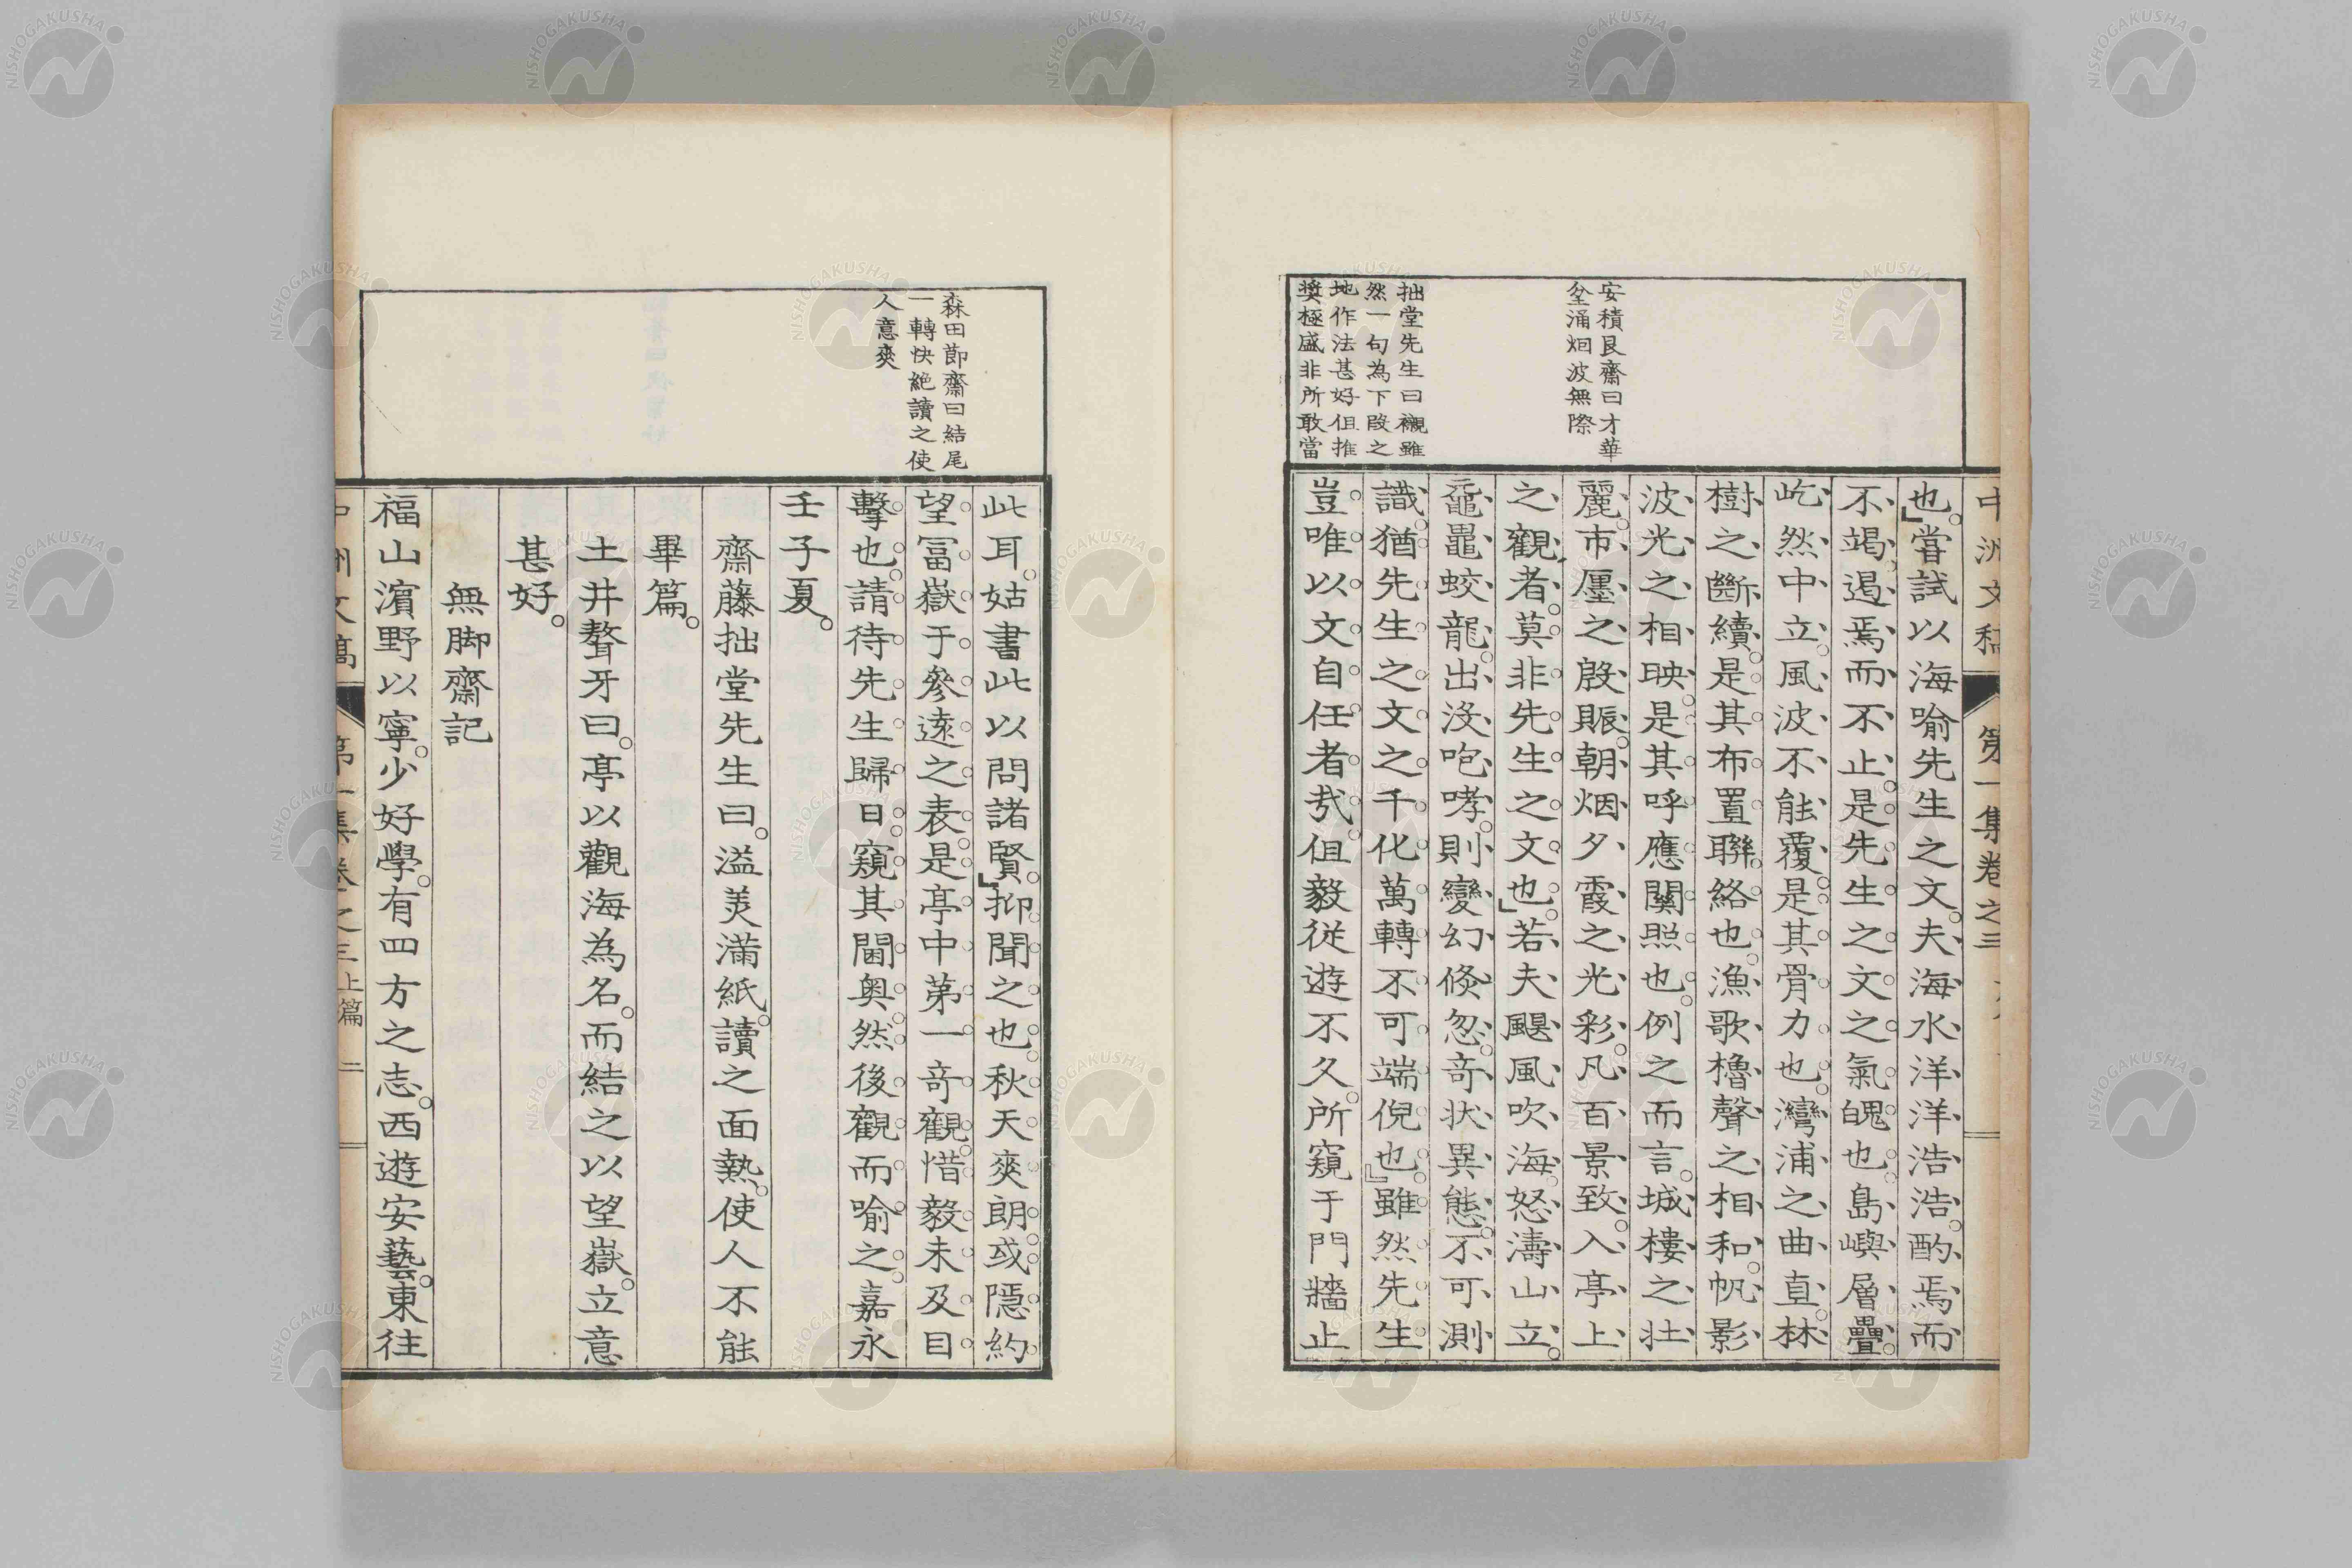 中洲文稿 第一集卷之三
安積艮齋曰才華
坌涌烟波無際
拙堂先生曰襯雖
然一句為下段之
地作法甚好但推
奬極盛非所敢當
也。嘗試以海喻先生之文。夫海水洋洋浩浩。酌焉而
不竭。遏焉而不止。是先生之文之氣魄也。島嶼層疊。
屹然中立。風波不能覆。是其骨力也。灣浦之曲直。林
樹之斷續。是其布置聯絡也。漁歌櫓聲之相和。帆影
波光之相映。是其呼應關照也。例之而言。城樓之壮
麗。市廛之殷賑。朝烟夕霞之光彩。凡百景致。入亭上
之觀者。莫非先生之文也。若夫颶風吹海。怒濤山立。
黿鼉蛟龍。出没咆哮。則變幻倏忽。奇状異態。不可測
識。猶先生之文之千化萬轉。不可端倪也。雖然先生
豈唯以文自任者㢤。但毅従遊不久。所窺于門牆止
森田節齋曰結尾
一轉快絶讀之使
人意爽
此耳。姑書此以問諸賢。抑聞之也。秋天爽朗。或隱約
望冨嶽于參遠之表。是亭中第一奇觀。惜毅未及目
擊也。請待先生歸日。窺其閫奥。然後觀而喻之。嘉永
壬子夏。
齋藤拙堂先生曰。溢美滿紙。讀之面熱。使人不能
畢篇。
土井聱牙曰。亭以觀海為名。而結之以望嶽。立意
甚好。
無脚齋記
福山濵野以寧。少好學。有四方之志。西遊安藝。東往
中洲文稿 第一集卷之三上篇 二
NISHOGAKUSHA